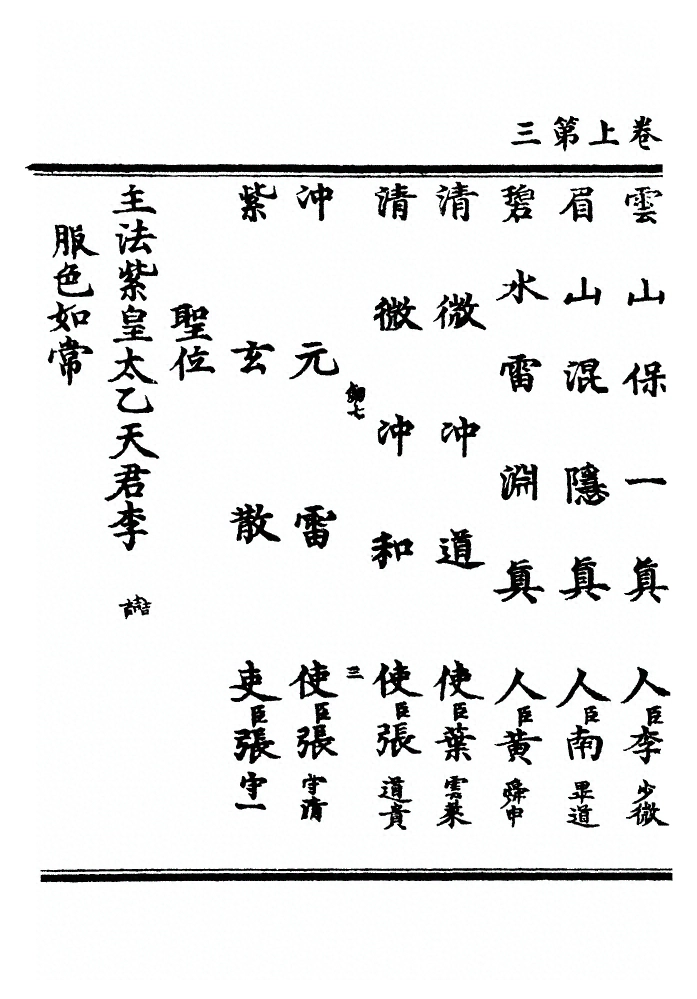 卷上第三
雲山保一真人臣李少微
眉山混隱真人臣南畢道
碧水雷淵真人臣黃舜申
清微冲道使臣葉雲萊
清微冲和使臣張道貴
三
冲元雷使臣張守清
紫玄散吏臣張守一
聖位
主法紫皇太乙天君李
服色如常